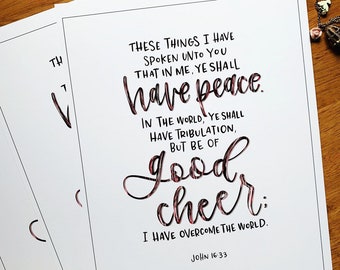 THESE THINGS I HAVE
SPOKEN UNTO YOU
THAT IN ME, YE SHALL
have peace.
IN THE WORLD, YE SHALL
HAVE TRIBULATION,
BUT BE OF
good
cheer;
I HAVE OVERCOME THE WORLD.
JOHN 16:33